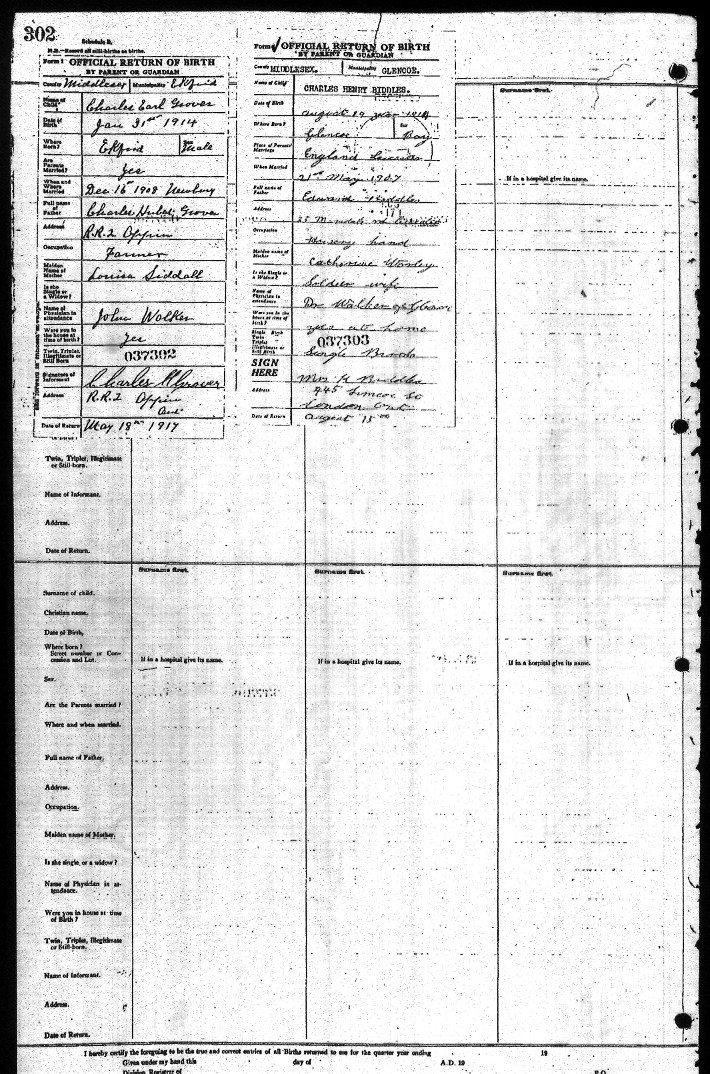 302
Schedule B.
N.B.—Record all still-births as births.
Form 1 OFFICIAL RETURN OF BIRTH
BY PARENT OR GUARDIAN
County Middlesex Municipality Ekfrid
Name of Child Charles Earl Grover
Date of Birth Jan 31st 1914
Where Born? Ekfrid Sex Male
Are Parents Married? Yes
When and Where Married Dec 16th 1908 Newbury
Full name of Father Charles Grover
Address R.R.2 Appin
Occupation Farmer
Maiden Name of Mother Louisa Siddall
Is she Single or a Widow?
Name of Physician in attendance John Walker
Were you in the house at time of birth? Yes
Twin, Triplet, Illegitimate or Still Born 037302
Signature of Informant Charles H Grover
Address R.R.2 Appin
Ont
Date of Return May 18th 1917
Form 1 OFFICIAL RETURN OF BIRTH
BY PARENT OR GUARDIAN
County MIDDLESEX. Municipality GLENCOE.
Name of Child CHARLES HENRY BIDDLES.
Date of Birth August 19 1914
Where Born? Glencoe Sex Boy
Place of Parents' Marriage England
When Married 21st May 1907
Full name of Father Edward Biddles
Address
Occupation hand
Maiden name of Mother Catherine
Is she Single or a Widow? Soldiers wife
Name of Physician in attendance Dr Walker of Glencoe
Were you in the house at time of birth? yes at home
Single Birth
Twin "
Triplet "
Illegitimate or Still Birth 037303
Single
SIGN HERE Mrs
Address 445 Simcoe St
London Ont
Date of Return August 15
Surname first.
If in a hospital give its name.
Twin, Triplet, Illegitimate or Still-born.
Name of Informant.
Address.
Date of Return.
Surname first. Surname first. Surname first.
Surname of child.
Christian name.
Date of Birth,
Where born?
Street number or Concession and Lot.
If in a hospital give its name. If in a hospital give its name. If in a hospital give its name.
Sex.
Are the Parents married?
Where and when married.
Full name of Father.
Address.
Occupation.
Maiden name of Mother.
Is she single, or a widow?
Name of Physician in attendance.
Were you in house at time of Birth?
Twin, Triplet, Illegitimate or Still-born.
Name of Informant.
Address.
Date of Return.
I hereby certify the foregoing to be the true and correct entries of all Births returned to me for the quarter year ending 19
Given under my hand this day of A.D. 19
Division Registrar of P.O.